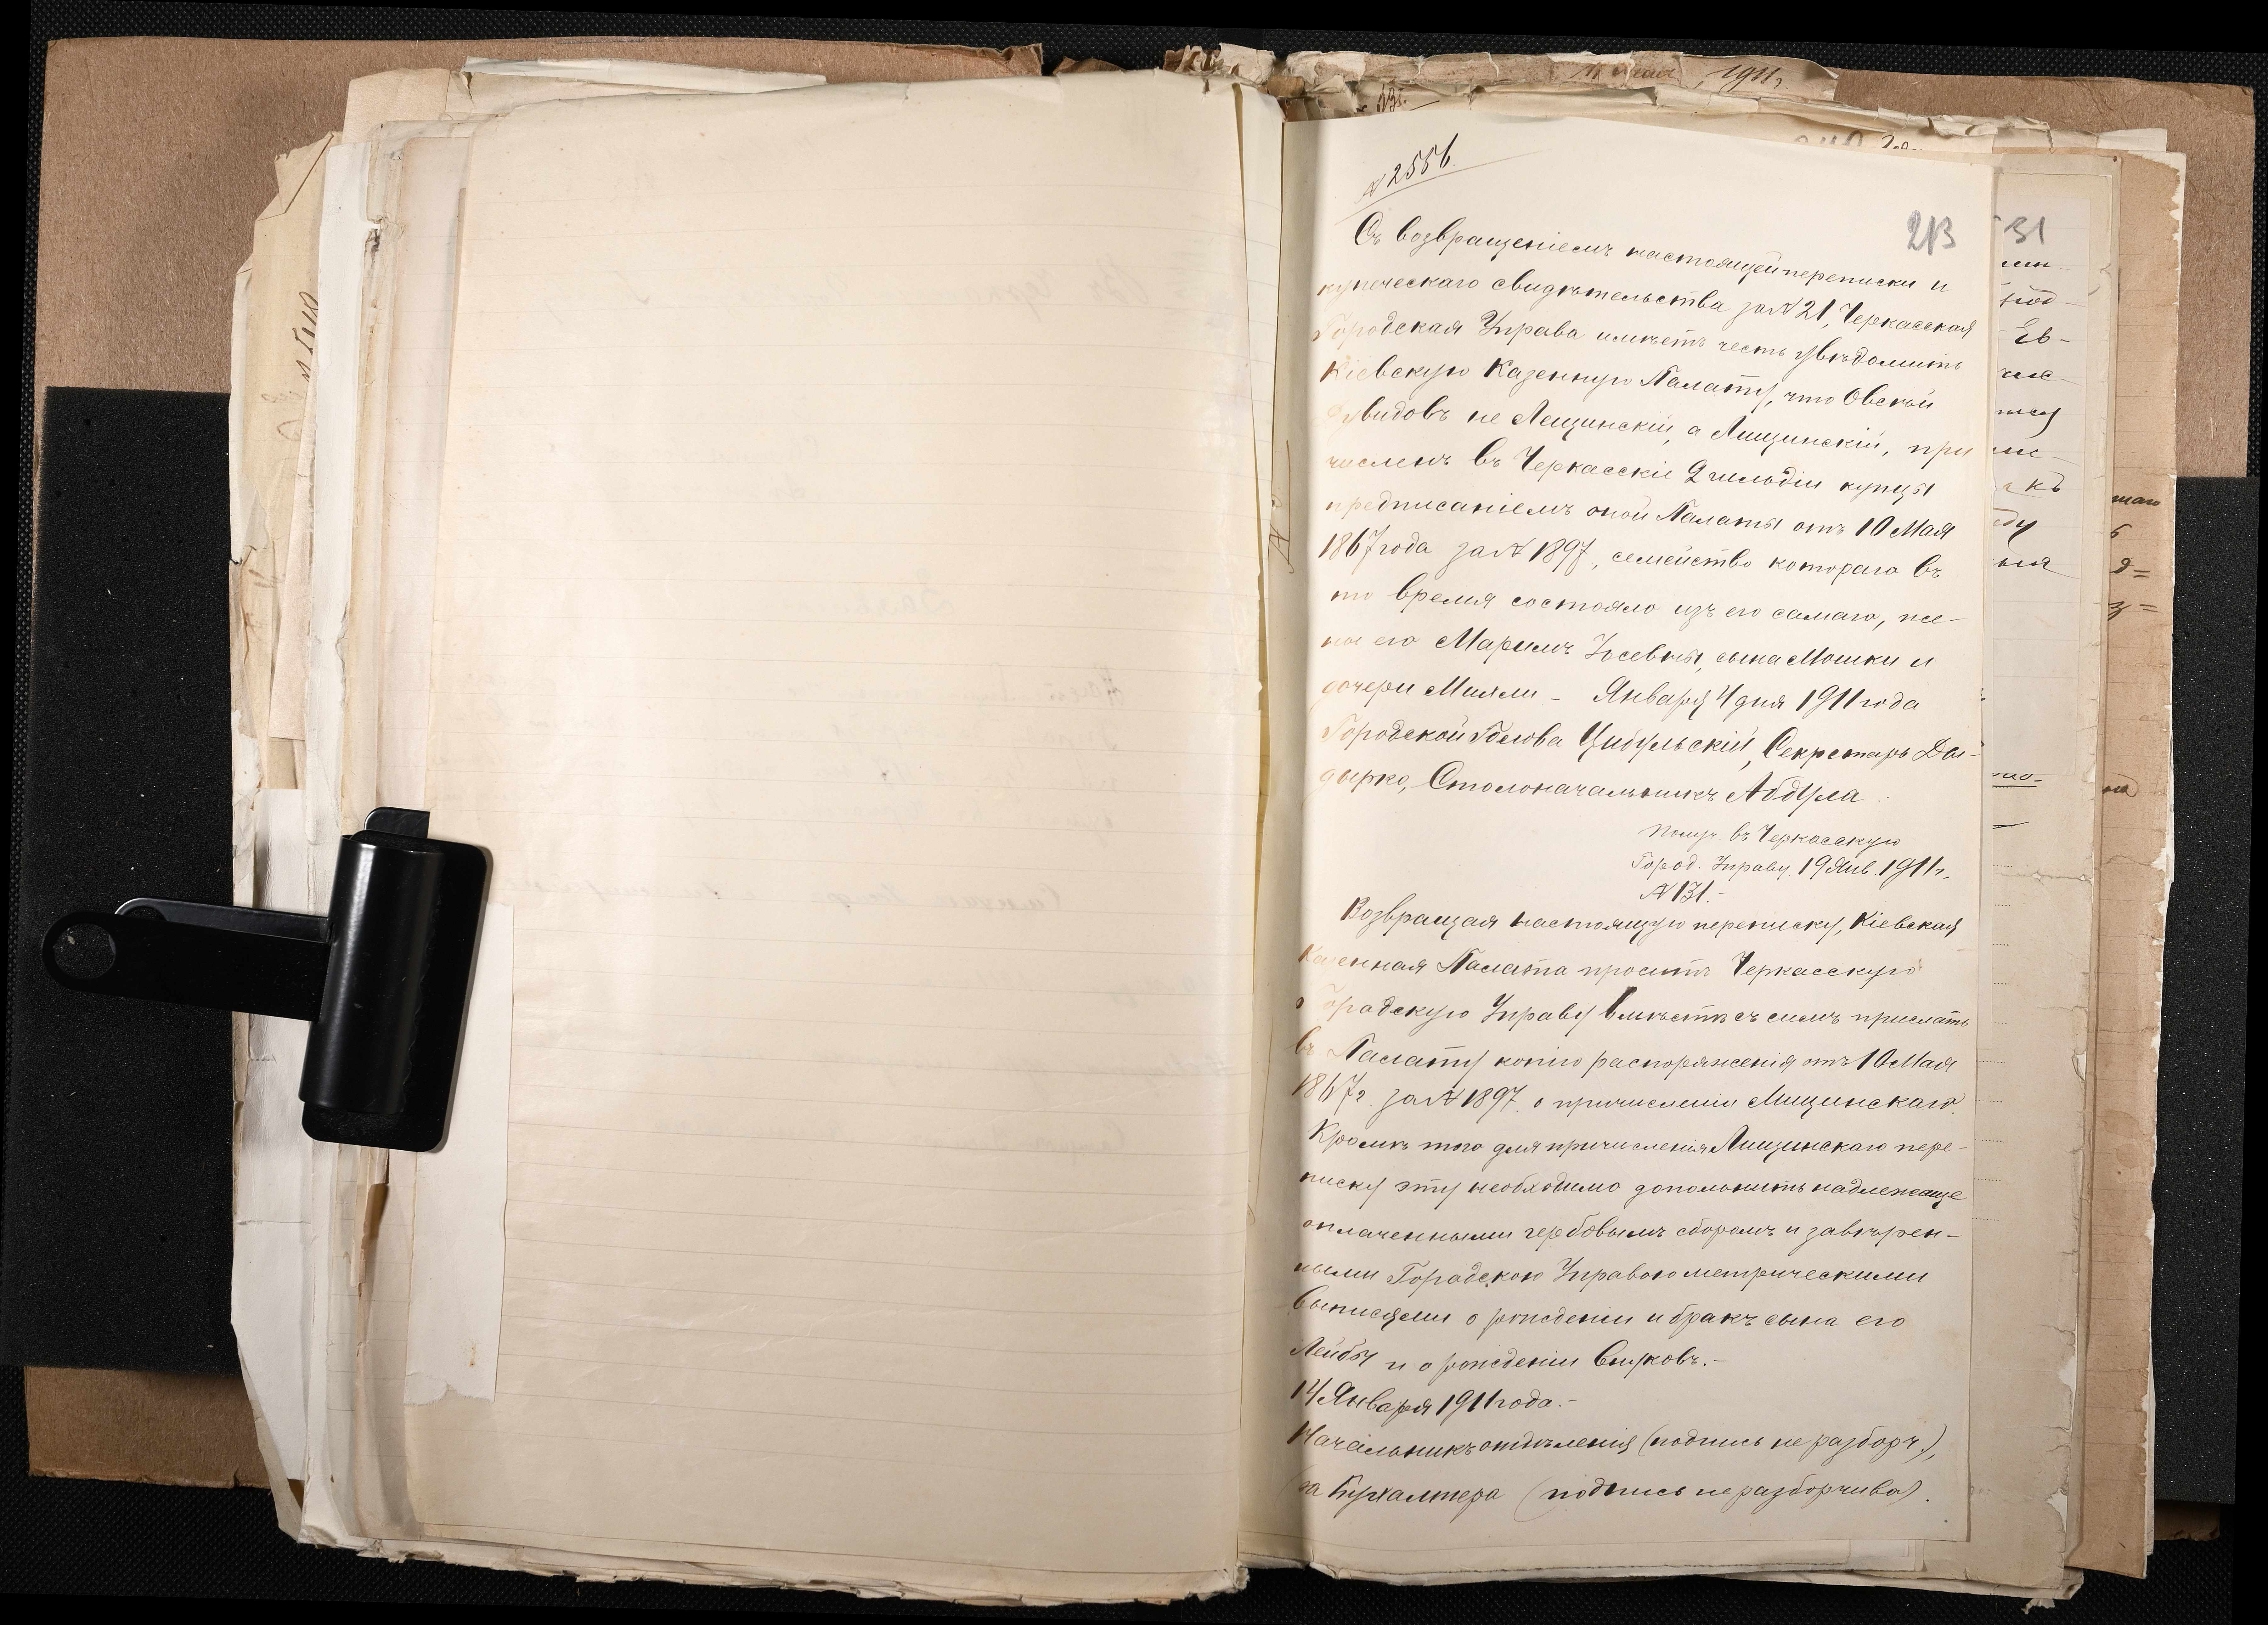 11 Мая 1911г.
№ 2556.
213
Съ возвращеніемъ настоящей переписки и
купеческаго свидѣтельства за № 21, Черкасская
Городская Управа имѣетъ честь увѣдомить
Кіевскую Казенную Палату, что Овсѣй
Дувидовъ не Лещинскій, а Лищинскій, при
численъ въ Черкасскіе 2 гильдіи купцы
предписаніемъ оной Палаты отъ 10 Мая
1867 года за № 1897, семейство котораго въ
то время состояло изъ его самаго, же-
ны его Маримъ Іосевны, сына Мошки и
дочери Миями – Января 4 дня 1911 года
Городской Голова Цибульскій, Секретарь Ды-
дырко, Столоначальникъ Абдула
Получ. въ Черкасскую
Город. Управу 19 Янв. 1911 г.
№ 131.-
Возвращая настоящую переписку, Кіевская
Казенная Палата проситъ Черкасскую
Городскую Управу вмѣстѣ съ симъ прислать
въ Палату копію распоряженія отъ 10 Мая
1867 г. за № 1897. о причисленіи Лищинскаго.
Кромѣ того для причисленія Лищинскаго пере-
писку эту необходимо дополнить надлежаще
оплаченными гербовымъ сборомъ и завѣрен-
ными Городскою Управою метрическими
выписями о рожденіи и бракѣ сына его
Лейбы и о рожденіи внуковъ.-
14 Января 1911 года.-
Начальникъ отдѣленія (подпись не разборч.),
за Бухгалтера (подпись не разборчива).